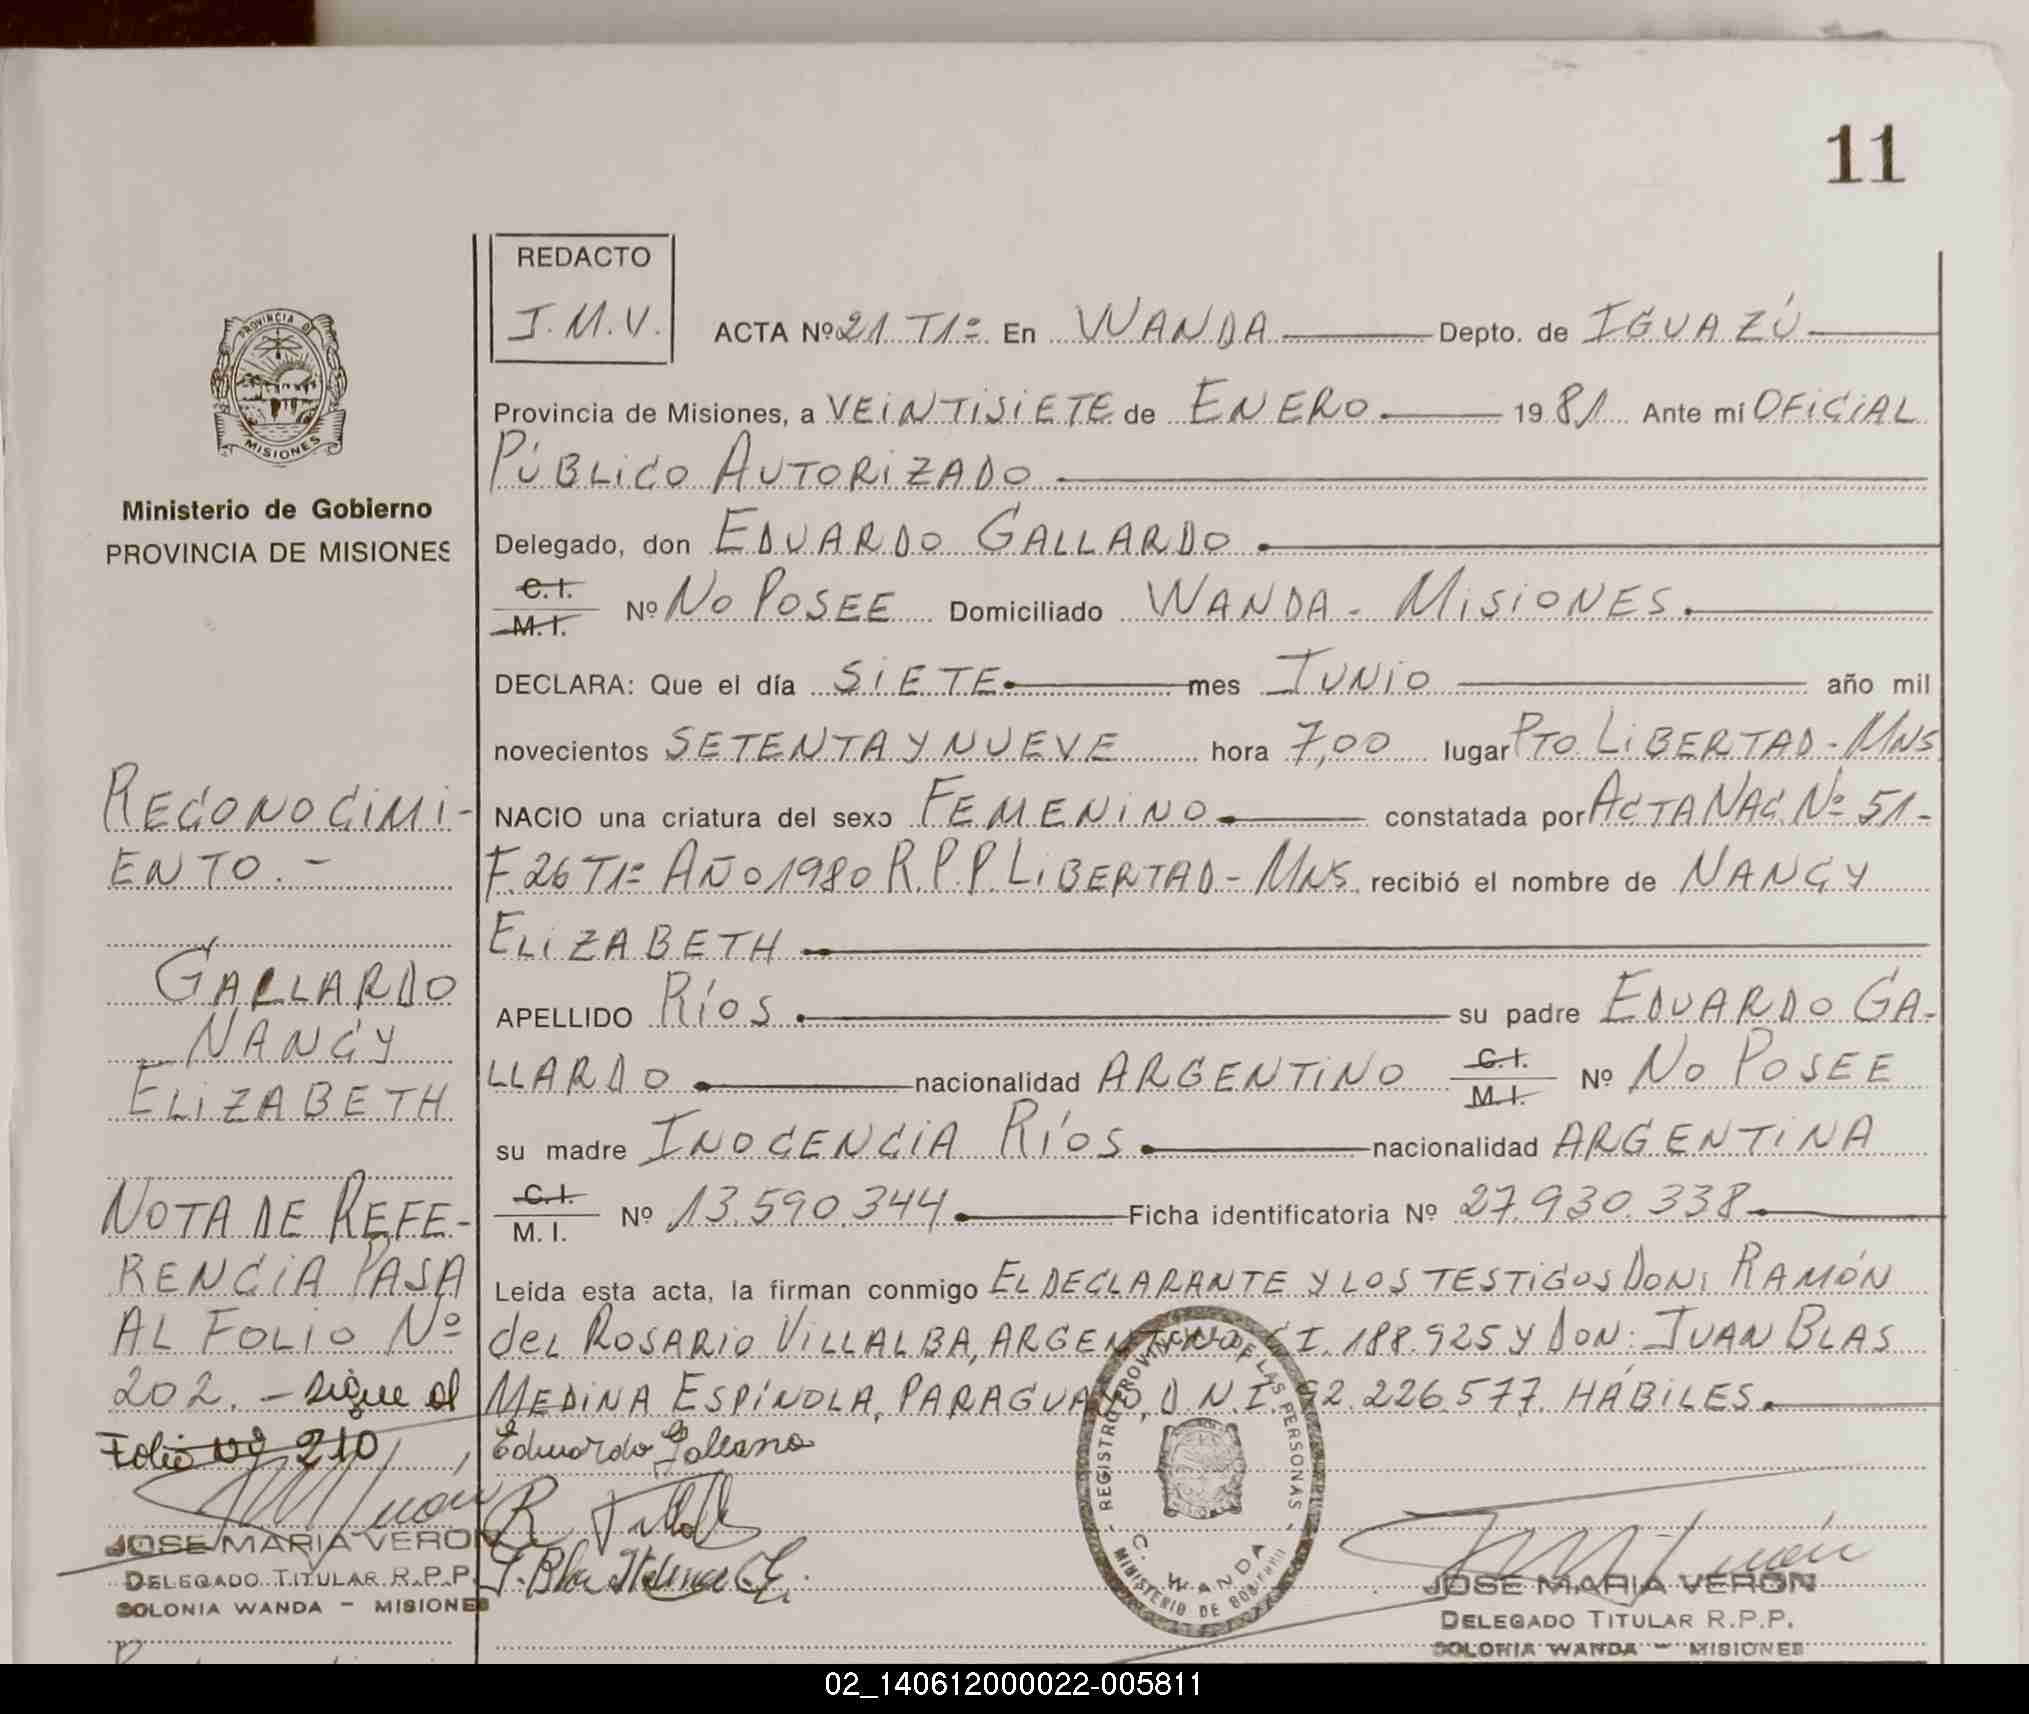 11
REDACTO
J.M.V.
ACTA Nº 21 T1º En WANDA Depto. de IGUAZÚ
Provincia de Misiones, a VEINTISIETE de ENERO 1981 Ante mí OFICIAL
PÚBLICO AUTORIZADO
Delegado, don EDUARDO GALLARDO
C.I.
M.I. Nº NO POSEE Domiciliado WANDA - MISIONES.
DECLARA: Que el día SIETE mes JUNIO año mil
novecientos SETENTA Y NUEVE hora 7,00 lugar PTO. LIBERTAD - MNS
NACIO una criatura del sexo FEMENINO constatada por ACTA NAC Nº 51-
F. 26 T1º AÑO 1980 R.P.P. LIBERTAD - MNS. recibió el nombre de NANCY
ELIZABETH
APELLIDO RÍOS su padre EDUARDO GA-
LLARDO nacionalidad ARGENTINO C.I.
M.I. Nº NO POSEE
su madre INOCENCIA RÍOS nacionalidad ARGENTINA
C.I.
M.I. Nº 13.590.344 Ficha identificatoria Nº 27.930.338
Leída esta acta, la firman conmigo EL DECLARANTE Y LOS TESTIGOS DON: RAMÓN
del ROSARIO VILLALBA, ARGENTINO, C.I. 188.925 Y DON: JUAN BLAS
MEDINA ESPÍNOLA, PARAGUAYO, D.N.I. 92.226.577. HÁBILES.
Eduardo
PROVINCIA DE
MISIONES
Ministerio de Gobierno
PROVINCIA DE MISIONES
RECONOCIMI-
ENTO. -
GALLARDO
NANCY
ELIZABETH
NOTA DE REFE-
RENCIA PASA
AL FOLIO Nº
202. - sigue al
Folio Nº 210
JOSE MARIA VERON
DELEGADO TITULAR R.P.P.
COLONIA WANDA - MISIONES
REGISTRO PROVINCIAL DE LAS PERSONAS
C. WANDA
MINISTERIO DE GOBIERNO
JOSE MARIA VERON
DELEGADO TITULAR R.P.P.
COLONIA WANDA - MISIONES
02_140612000022-005811